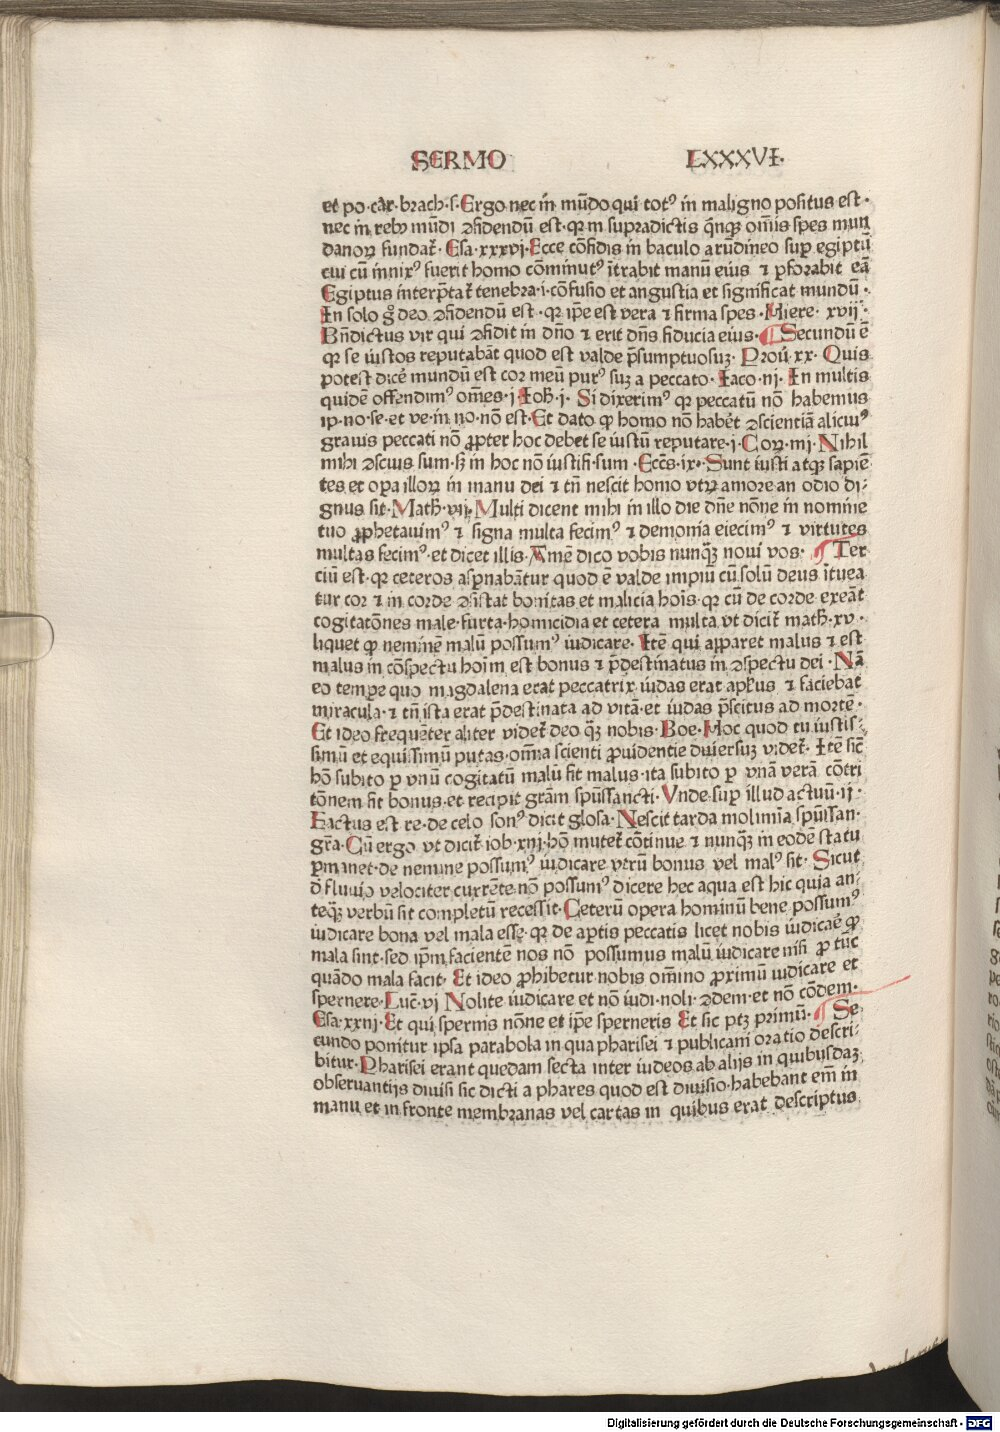 SERMO LXXXVI·
et po·car·brach·s·Ergo nec in mūdo qui totꝰ in maligno positus est·
nec in rebꝰ mūdi ꝯfidendū est·qꝛ in supradictis q̄nqꝫ om̄is spes mun
danoꝝ fundat̄· Esa·xxxvj·Ecce cōfidis in baculo arūdineo suꝑ egiptū
cui cū innixꝰ fuerit homo cōminutꝰ ītrabit manū eius ⁊ ꝑforabit eā
Egiptus interp̄tat̄ tenebra·i·cōfusio et angustia et significat mundū·
In solo gͦ deo ꝯfidendū est·qꝛ ip̄e est vera ⁊ firma spes·Hiere·xvij·
Bn̄dictus vir qui ꝯfidit in dn̄o ⁊ erit dn̄s fiducia eius·¶ Secundū ē
qꝛ se iustos reputabāt quod est valde p̄sumptuosuꝫ·Prou·xx·Quis
potest dicē mundū est cor meū purꝰ suꝫ a peccato·Iaco·iij·In multis
quidē offendimꝰ om̄es·j Ioh̄·j·Si dixerimꝰ qꝛ peccatū nō habemus
ip·no·se·et ve·in no·nō est·Et dato ꝙ homo nō habēt ꝯscientiā alicuiꝰ
grauis peccati nō ꝓpter hoc debet se iustū reputare·j·Coꝝ·iiij·Nihil
mihi ꝯscius sum·sꝫ in hoc nō iustifi·sum·Eccēs·ix·Sunt iusti atqꝫ sapiē
tes et oꝑa illoꝝ in manu dei ⁊ tn̄ nescit homo vtꝝ amore an odio di-
gnus sit·Math̄·vij·Multi dicent mihi in illo die dn̄e nōne in nomine
tuo ꝓphetauimꝰ ⁊ signa multa fecimꝰ ⁊ demonia eiecimꝰ ⁊ virtutes
multas fecimꝰ·et dicet illis·Amē dico vobis nunqꝫ̄ noui vos·¶ Ter
ciū est·qꝛ ceteros asꝑnabāntur quod ē valde impiū cū solū deus ītuea
tur cor ⁊ in corde ꝯsistat bonitas et malicia hoīs·qꝛ cū de corde exeāt
cogitatōnes male·furta·homicidia et cetera multa vt dicit̄ math̄·xv·
liquet ꝙ neminē malū possumꝰ iudicare·Itē qui apparet malus ⁊ est
malus in cōspectu hoīm est bonus ⁊ p̄destinatus in ꝯspectu dei·Nā
eo tempe quo magdalena erat peccatrix iudas erat apl̄us ⁊ faciebat
miracula·⁊ tn̄ ista erat p̄destinata ad vitā·et iudas p̄scitus ad mortē·
Et ideo frequēter aliter videt̄ deo qꝫ̄ nobis·Boe·Hoc quod tu iustis-
simū et equissimū putas·om̄ia scienti ꝓuidentie diuersuꝫ videt̄·Itē sic̄
hō subito ꝑ vnū cogitatū malū fit malus·ita subito ꝑ vnā verā cōtri
tōnem fit bonus·et recipit gr̄am spūssancti·Vnde·suꝑ illud actuū·ij·
Factus est re·de celo sonꝰ dicit glosa·Nescit tarda molimia spūssan·
gr̄a·Cū ergo vt dicit̄ iob·xiiij·hō mutet̄ cōtinue ⁊ nunqꝫ̄ in eodē statu
ꝑmanet·de nemine possumꝰ iudicare vtrū bonus vel malꝰ sit·Sicut
d̄ fluuio velociter currēte nō possumꝰ dicere hec aqua est hic quia an-
teqꝫ̄ verbū sit completū recessit·Ceterū opera hominū bene possumꝰ
iudicare bona vel mala esse·qꝛ de aꝑtis peccatis licet nobis iudicaē ꝙ
mala sint·sed ip̄m facientē nos nō possumus malū iudicare nisi ꝓ tūc
quādo mala facit·Et ideo ꝓhibetur nobis om̄ino ꝓximū iudicare et
spernere·Luc̄·vj Nolite iudicare et nō iudi·noli·ꝯdem·et nō cōdem·
Esa·xxxiij·Et qui spernis nōne et ip̄e sperneris Et sic ptꝫ primū·¶ Se
cundo ponitur ipsa parabola in qua pharisei ⁊ publicani oratio descri-
bitur·Pharisei erant quedam secta inter iudeos ab alijs in quibusdaꝫ
obseruantijs diuisi sic dicti a phares quod est diuisio·habebant em̄ in
manu et in fronte membranas vel cartas in quibus erat descriptus
Digitalisierung gefördert durch die Deutsche Forschungsgemeinschaft · DFG